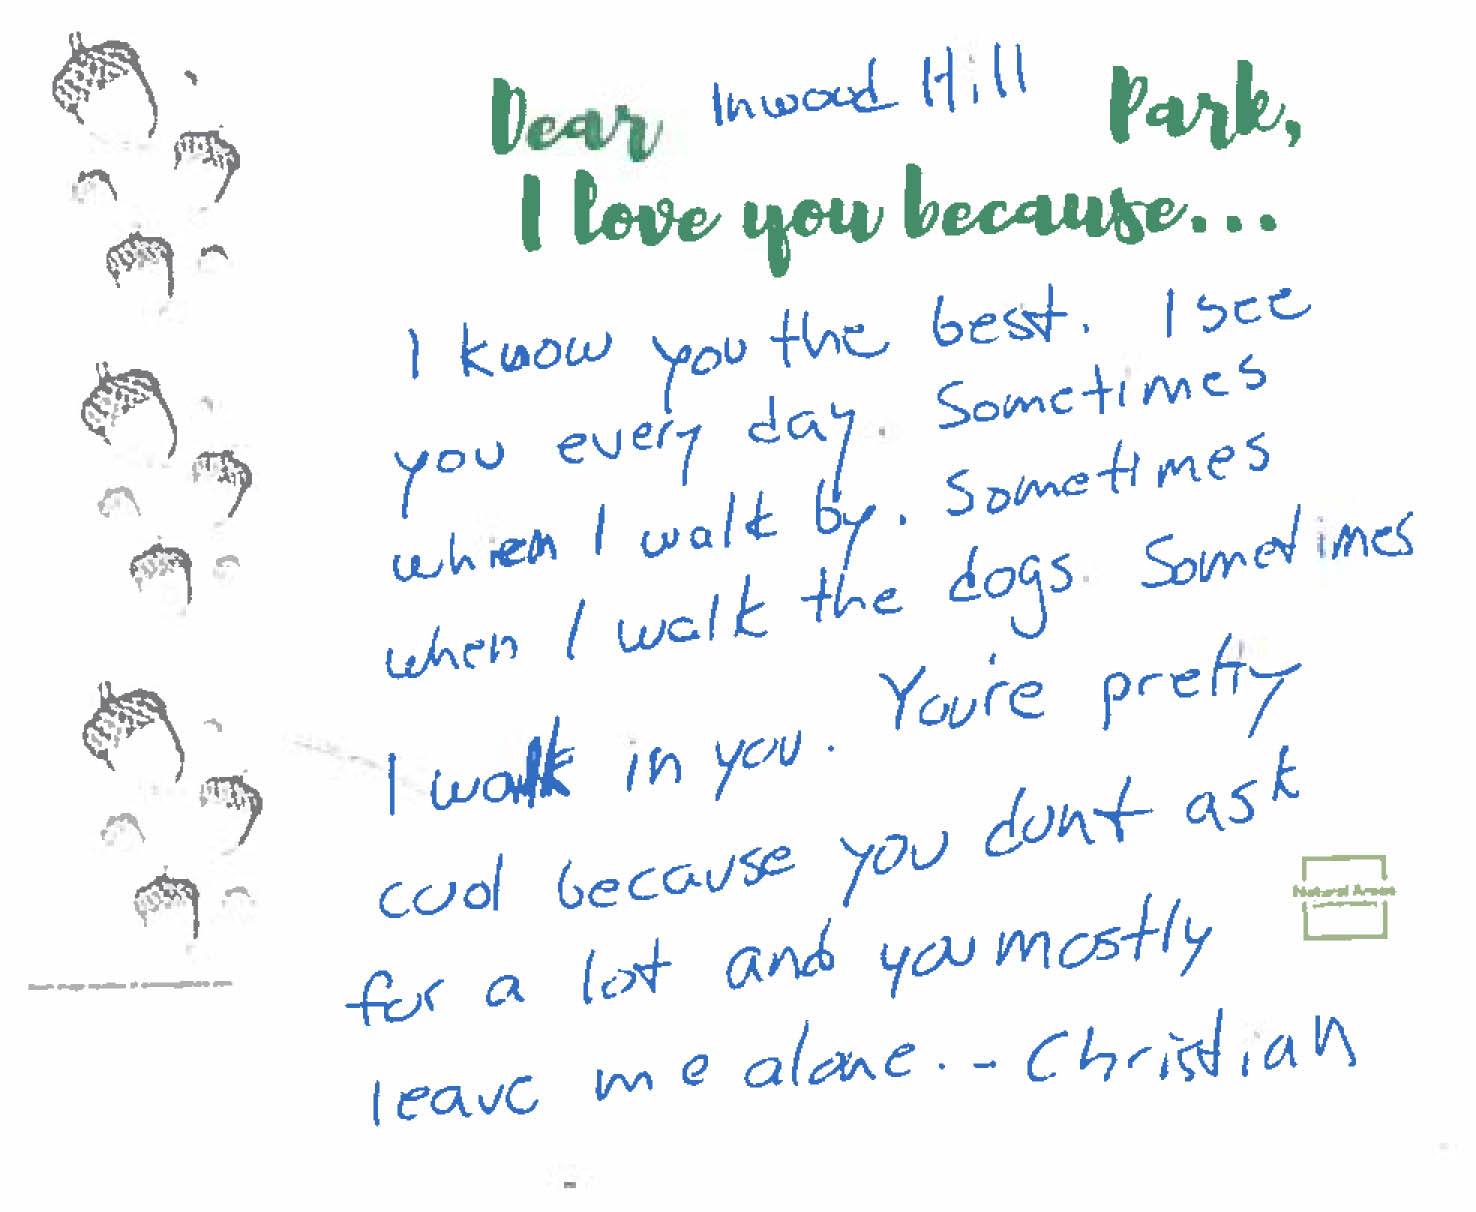 Dear Inwood Hill Park,
I love you because...
I know you the best. I see
you every day. Sometimes
when I walk by. Sometimes
when I walk the dogs. Sometimes
I walk in you. You're pretty
cool because you dont ask
for a lot and you mostly
leave me alone. - Christian
Natural Areas